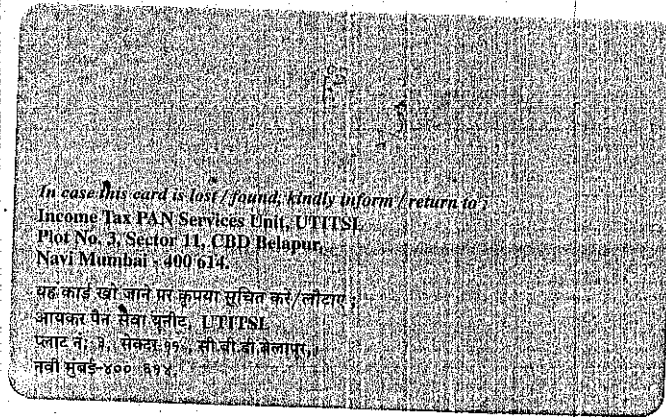 In case this card is lost / found, kindly inform / return to :
Income Tax PAN Services Unit, UTITSL
Plot No. 3, Sector 11, CBD Belapur,
Navi Mumbai - 400 614.
यह कार्ड खो जाने पर कृपया सूचित करें/लौटाए :
आयकर पैन सेवा यूनीट, UTITSL
प्लाट नं: ३, सेक्टर ११, सी.बी.डी.बेलापुर,
नवी मुंबई-४०० ६१४.